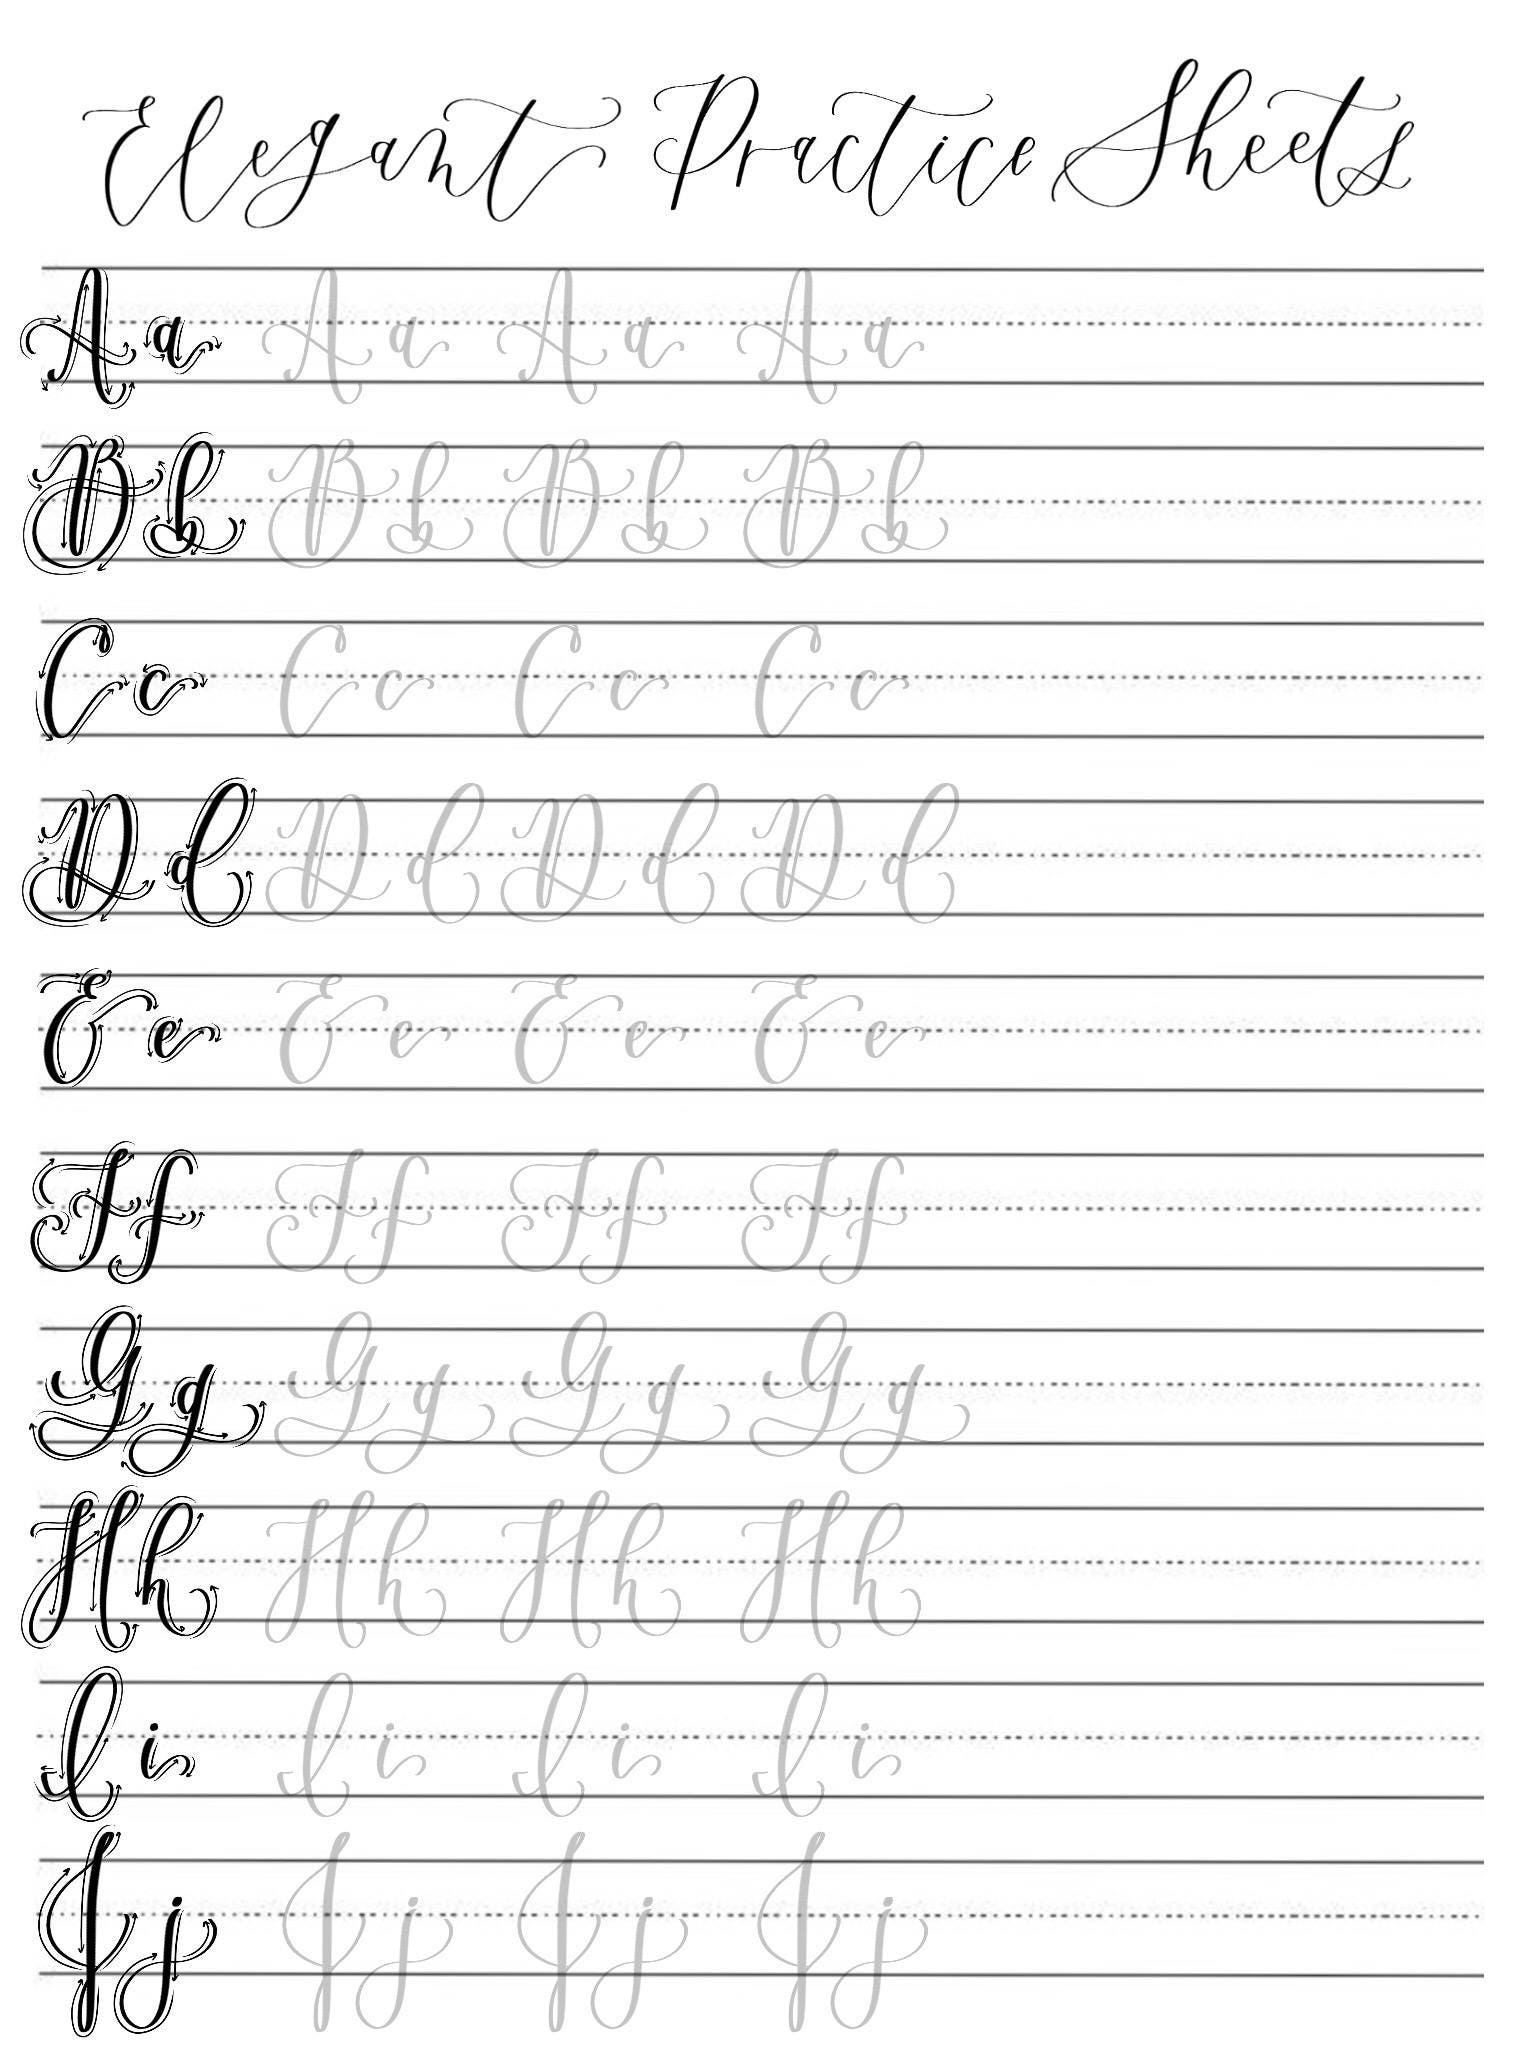 Elegant Practice Sheets
A a A a A a A a
B b B b B b B b
C c C c C c C c
D d D d D d D d
E e E e E e E e
F f F f F f F f
G g G g G g G g
H h H h H h H h
I i I i I i I i
J j J j J j J j